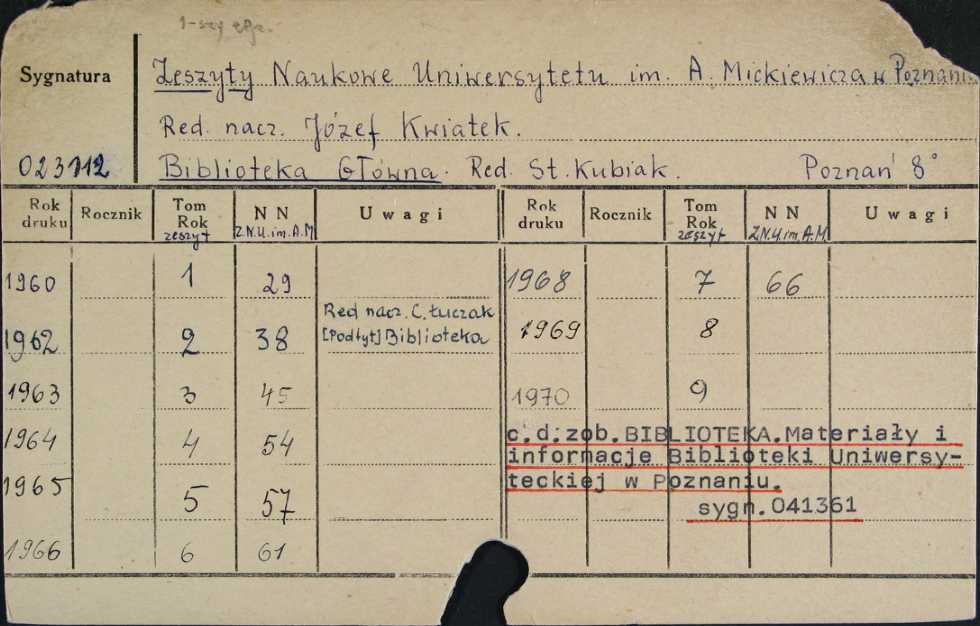 1-szy egz.
Sygnatura
Zeszyty Naukowe Uniwersytetu im. A. Mickiewicza w Poznaniu.
Red. nacz. Józef Kwiatek.
023112 Biblioteka Główna. Red. St. Kubiak. Poznań 8°
Rok druku Rocznik Tom Rok zeszyt NN Z.N.U.im.A.M. Uwagi Rok druku Rocznik Tom Rok zeszyt NN Z.N.U.im.A.M. Uwagi
1960 1 29 1968 7 66
Red nacz. C. Łuczak
1962 2 38 [Podtyt] Biblioteka 1969 8
1963 3 45 1970 9
1964 4 54 c.d.zob. BIBLIOTEKA. Materiały i
informacje Biblioteki Uniwersy-
1965 5 57 teckiej w Poznaniu.
sygn. 041361
1966 6 61